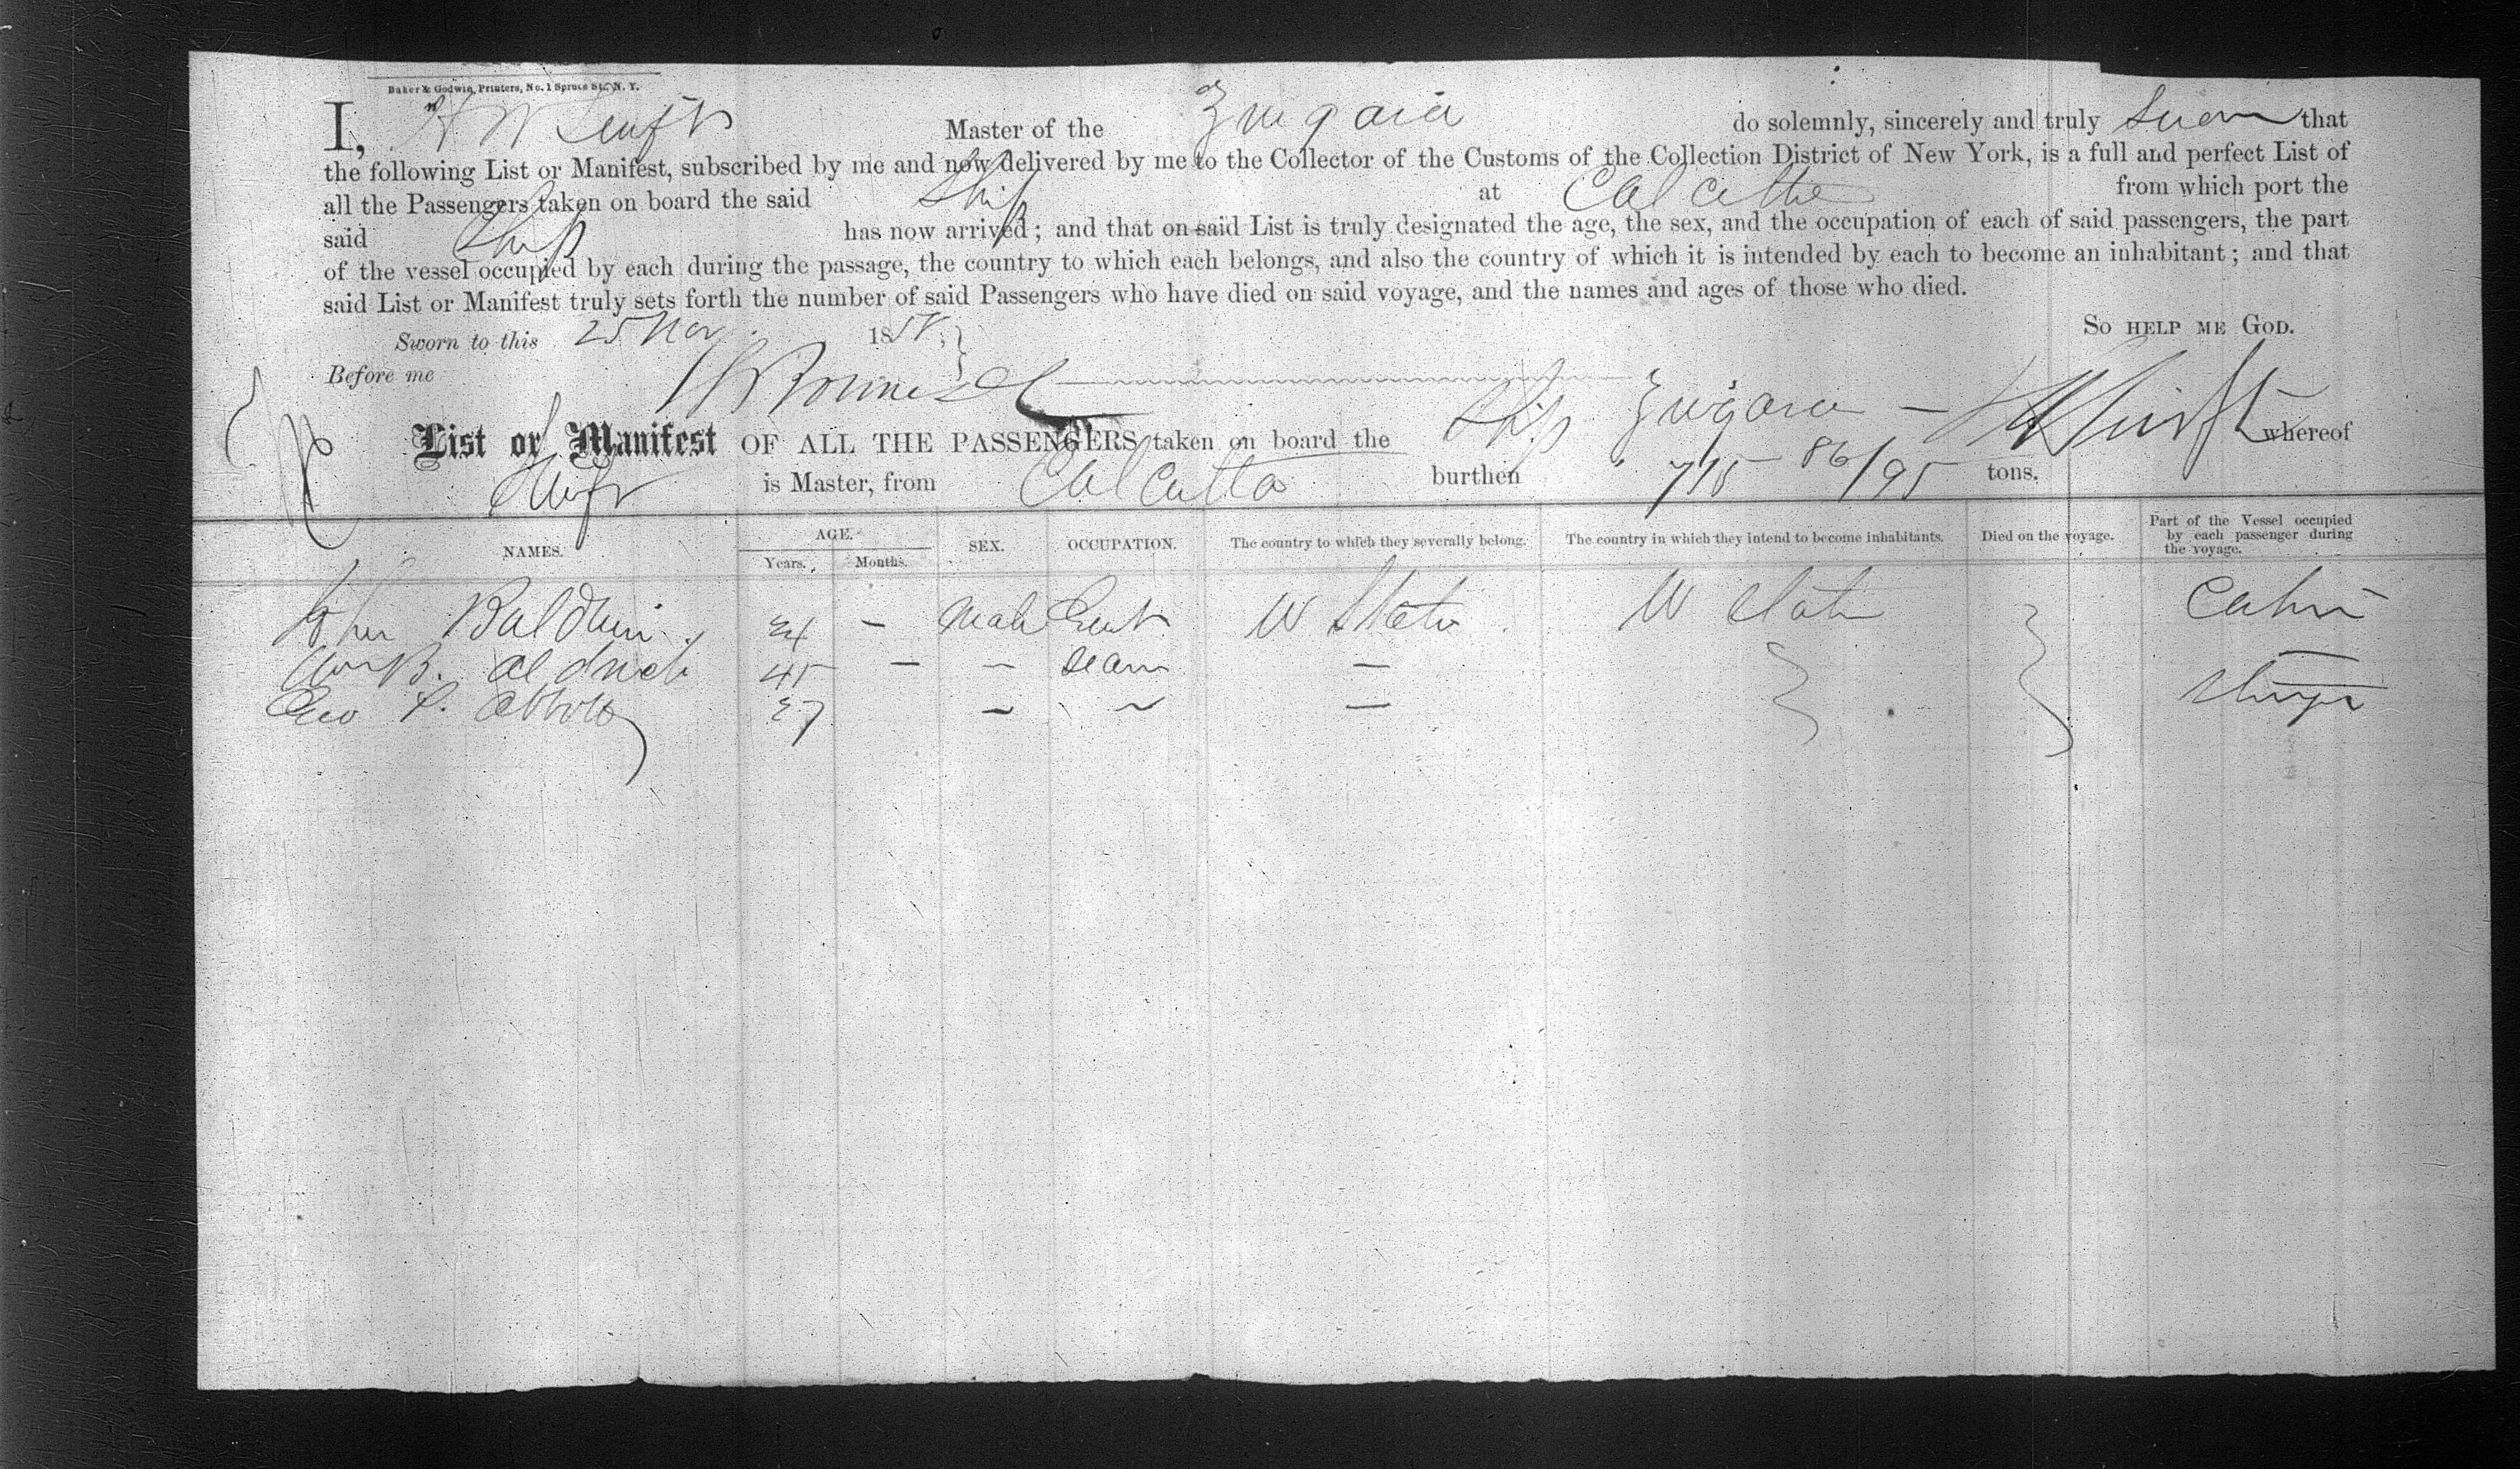 Baker & Godwin, Printers, No. 1 Spruce St., N. Y.
I, Master of the Zingaria do solemnly, sincerely and truly swear that
the following List or Manifest, subscribed by me and now delivered by me to the Collector of the Customs of the Collection District of New York, is a full and perfect List of
all the Passengers taken on board the said Ship at Calcutta from which port the
said Ship has now arrived; and that on said List is truly designated the age, the sex, and the occupation of each of said passengers, the part
of the vessel occupied by each during the passage, the country to which each belongs, and also the country of which it is intended by each to become an inhabitant; and that
said List or Manifest truly sets forth the number of said Passengers who have died on said voyage, and the names and ages of those who died.
Sworn to this 25 Nov 185 So help me God.
Before me
List or Manifest OF ALL THE PASSENGERS taken on board the Ship whereof
is Master, from Calcutta burthen 715 86/95 tons.
NAMES. AGE. Years. Months. SEX. OCCUPATION. The country to which they severally belong. The country in which they intend to become inhabitants. Died on the voyage. Part of the Vessel occupied by each passenger during the voyage.
John Baldwin - Male Gent U States U States Cabin
Wm B. Aldrich 45 - - Seam -
Geo F. Abbott 27 - - -